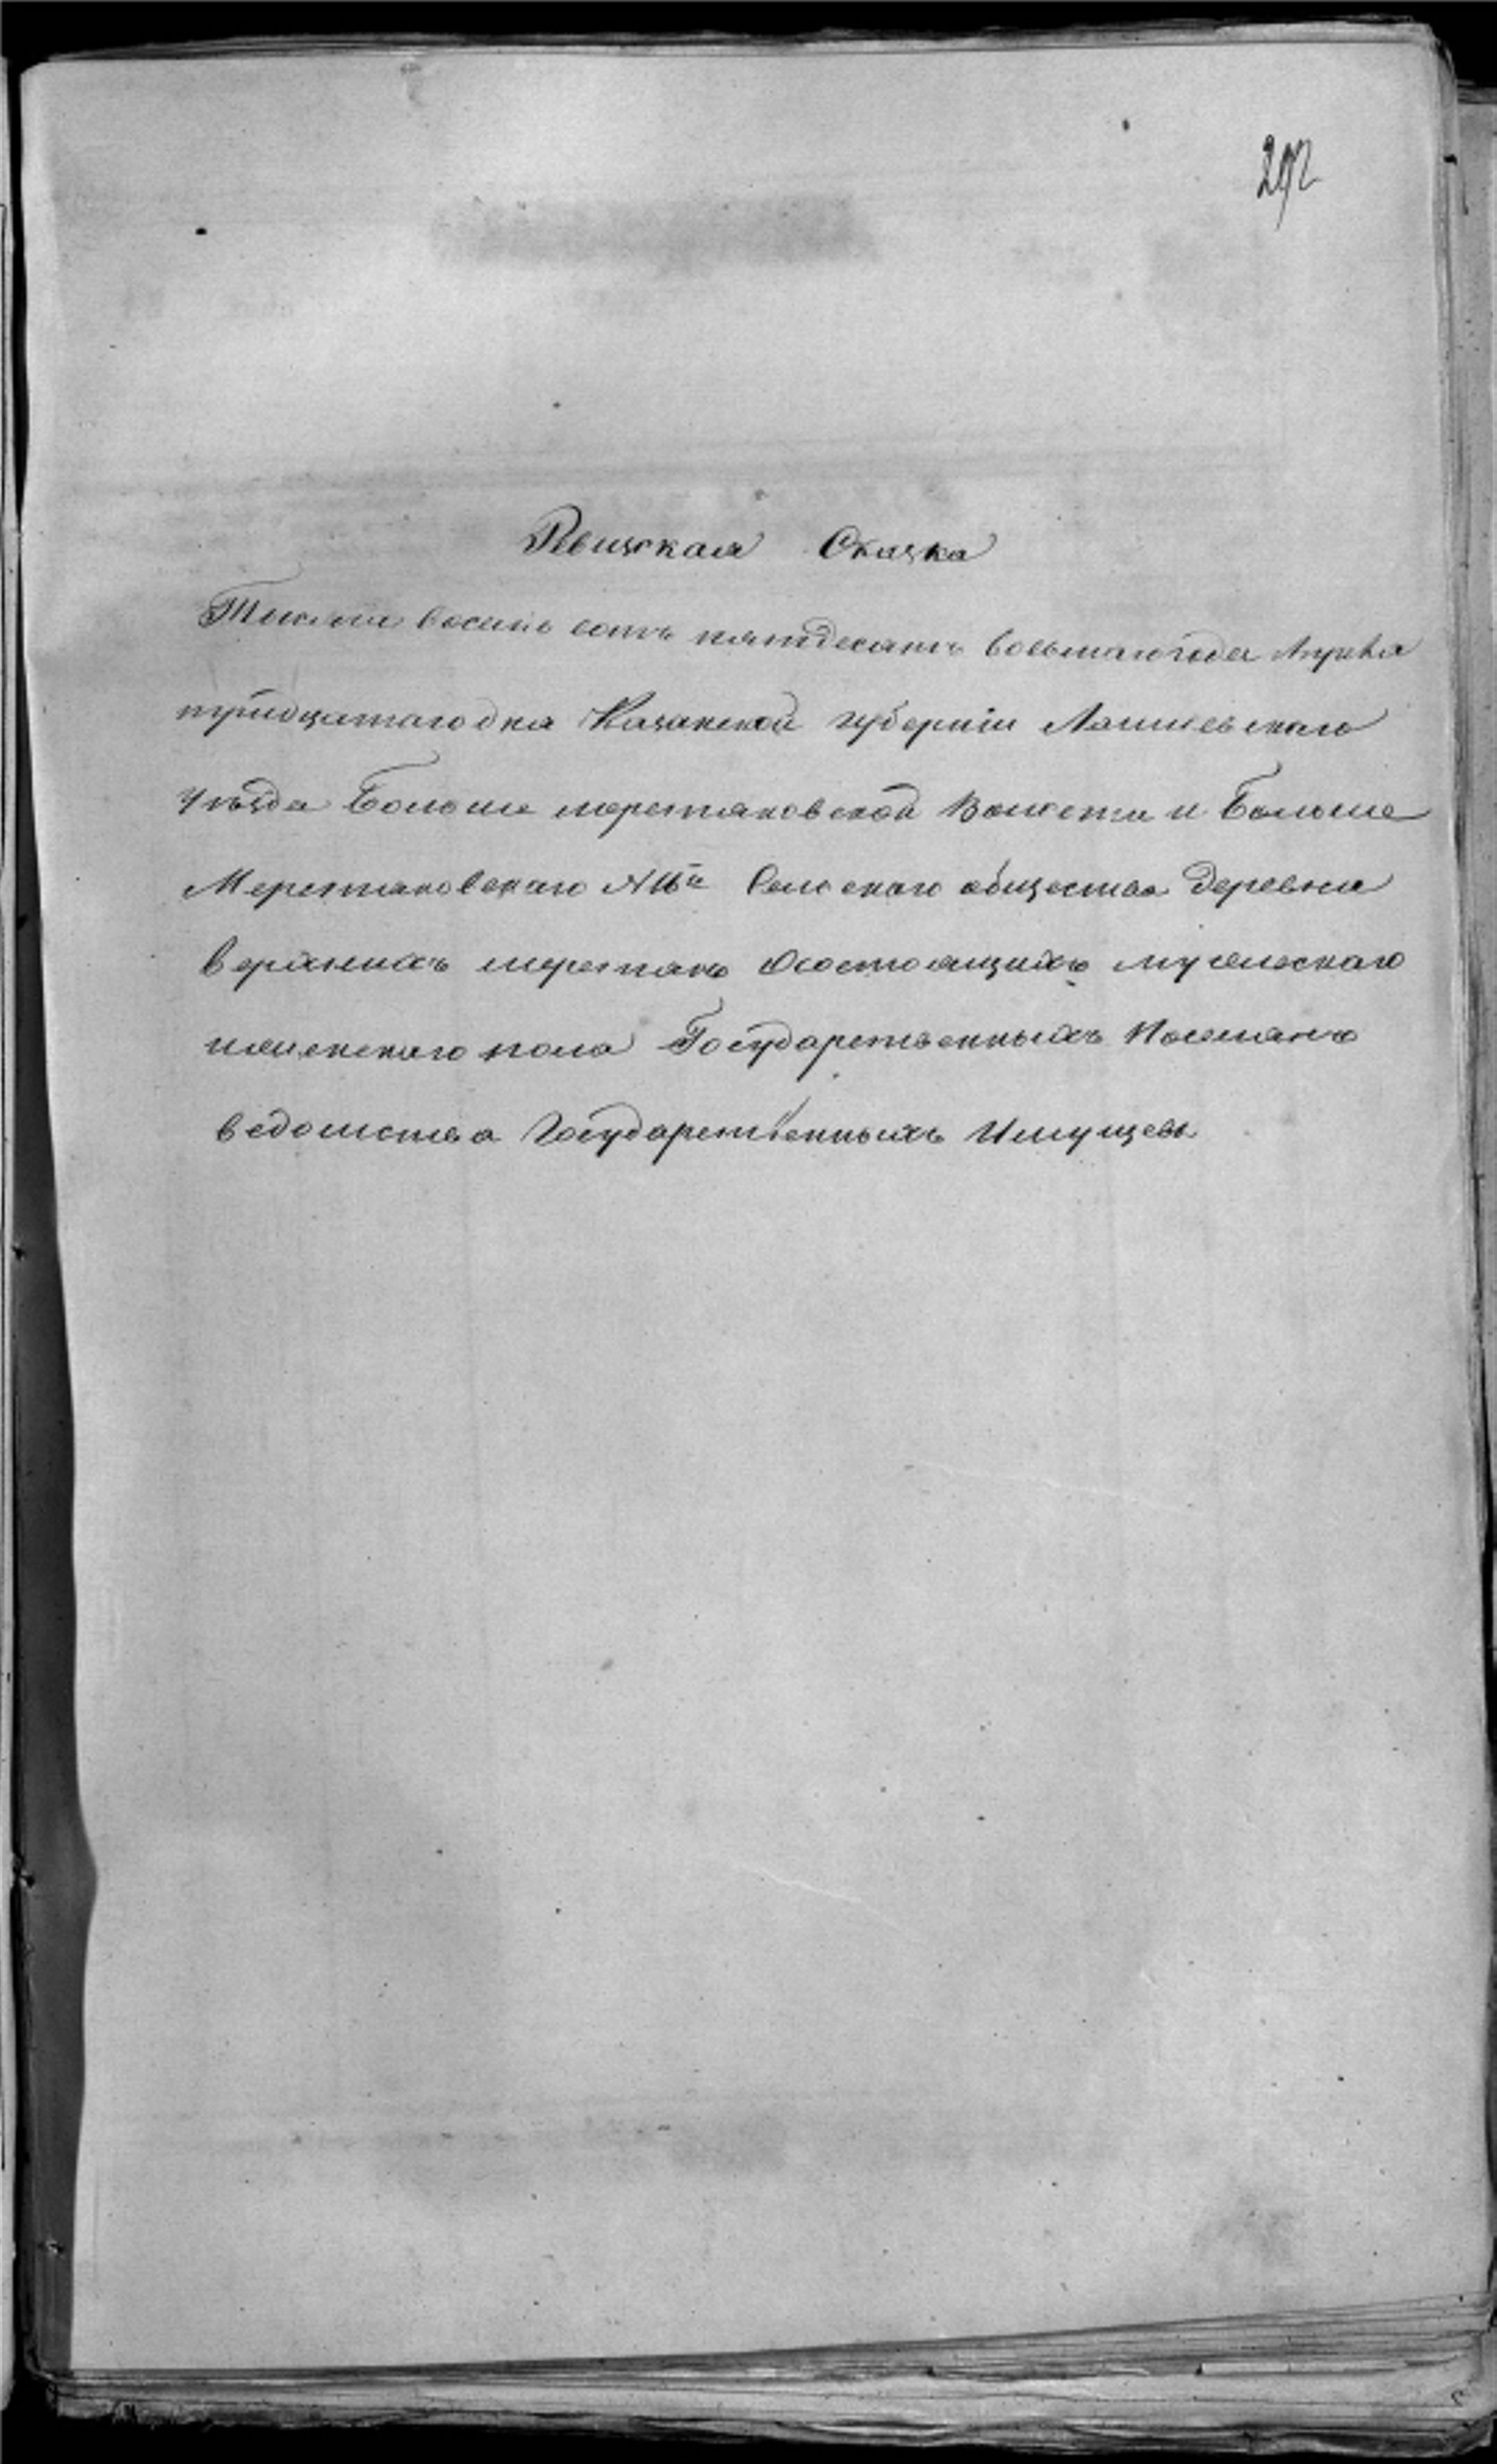 292
Ревизская Сказка
Тысяча восемь сотъ пятдесятъ восьмаго года Апреля
тридцатаго дня Казанской губерніи Лаишевскаго
уѣзда Больше меретяковской Волости и Больше
Меретяковскаго Сельскаго общества деревни
верхнихъ меретякъ состоящихъ мужескаго
женскаго пола Государственныхъ Поселянъ
ведомства Государственныхъ Имуществ